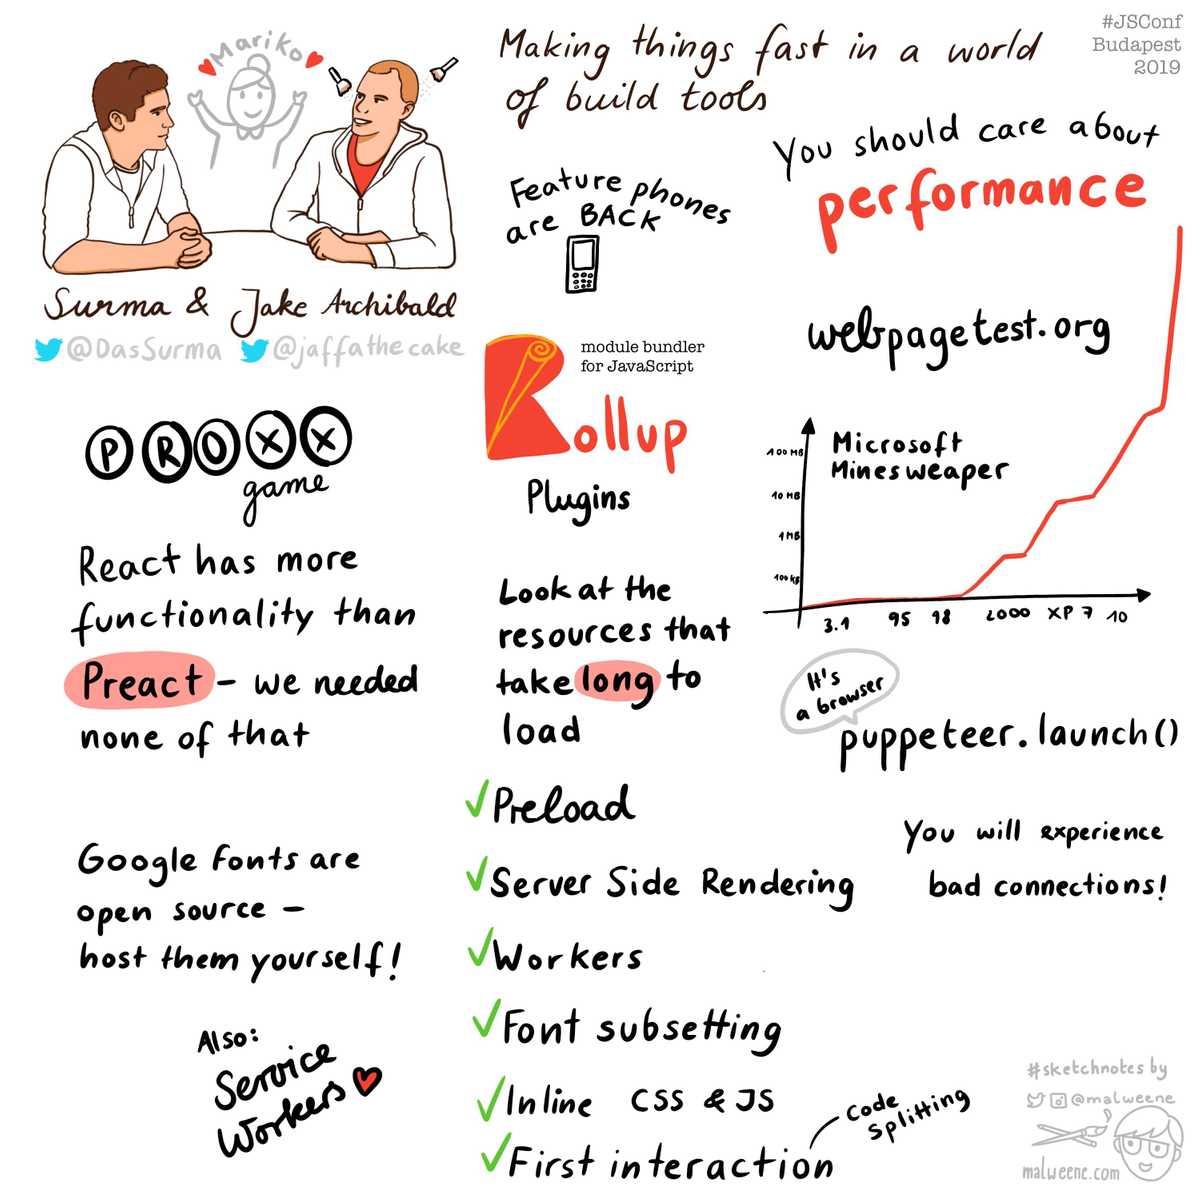 Mariko
Surma & Jake Archibald
@DasSurma @jaffathecake
Making things fast in a world
of build tools
#JSConf
Budapest
2019
Feature phones
are BACK
You should care about
performance
webpagetest.org
Rollup
module bundler
for JavaScript
Plugins
PROXX
game
React has more
functionality than
Preact – we needed
none of that
Google Fonts are
open source –
host them yourself!
Also:
Service
Workers
Look at the
resources that
take long to
load
✓ Preload
✓ Server Side Rendering
✓ Workers
✓ Font subsetting
✓ Inline CSS & JS
✓ First interaction
Code
Splitting
Microsoft
Minesweaper
100 MB
10 MB
1 MB
100 kB
3.1 95 98 2000 XP 7 10
It's
a browser
puppeteer.launch()
You will experience
bad connections!
#sketchnotes by
@malweene
malweene.com